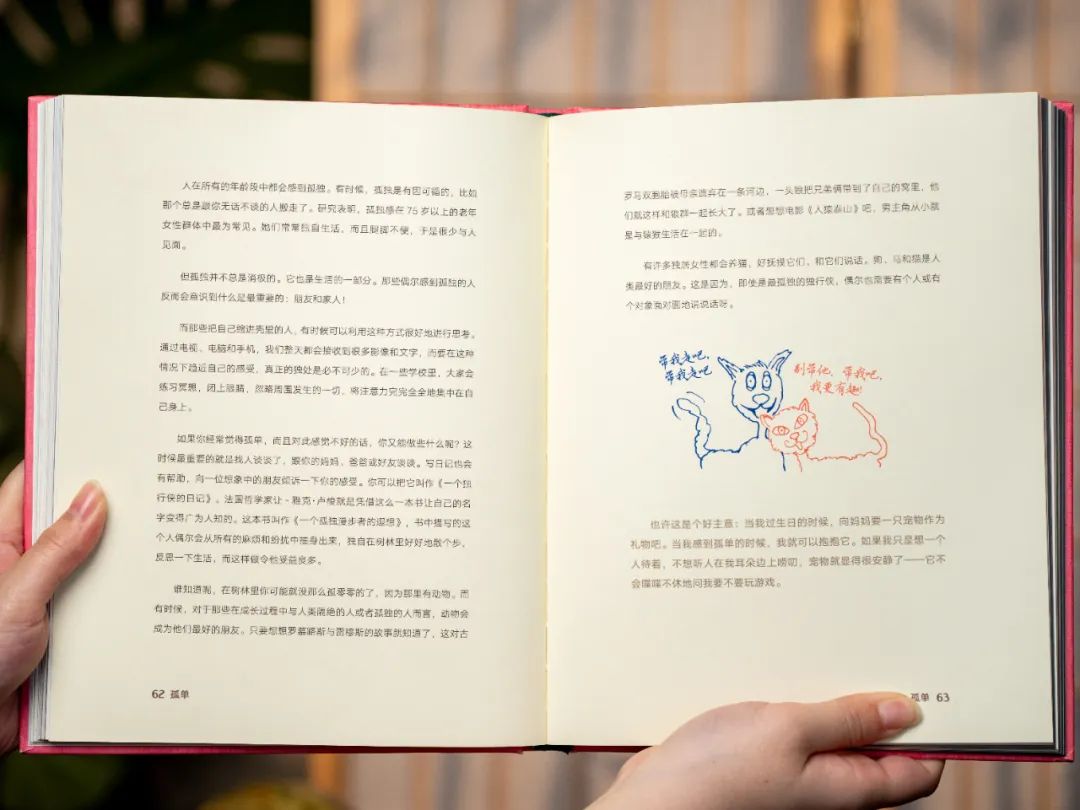 人在所有的年龄段中都会感到孤独。有时候，孤独是有因可循的，比如
那个总是跟你无话不谈的人搬走了。研究表明，孤独感在 75 岁以上的老年
女性群体中最为常见。她们常常独自生活，而且腿脚不便，于是很少与人
见面。
但孤独并不总是消极的。它也是生活的一部分。那些偶尔感到孤独的人
反而会意识到什么是最重要的：朋友和家人！
而那些把自己缩进壳里的人，有时候可以利用这种方式很好地进行思考。
通过电视、电脑和手机，我们整天都会接收到很多影像和文字，而要在这种
情况下趋近自己的感受，真正的独处是必不可少的。在一些学校里，大家会
练习冥想，闭上眼睛，忽略周围发生的一切，将注意力完完全全地集中在自
己身上。
如果你经常觉得孤单，而且对此感觉不好的话，你又能做些什么呢？这
时候最重要的就是找人谈谈了，跟你的妈妈、爸爸或好友谈谈。写日记也会
有帮助，向一位想象中的朋友倾诉一下你的感受。你可以把它叫作《一个独
行侠的日记》。法国哲学家让-雅克·卢梭就是凭借这么一本书让自己的名
字变得广为人知的。这本书叫作《一个孤独漫步者的遐想》，书中描写的这
个人偶尔会从所有的麻烦和纷扰中抽身出来，独自在树林里好好地散个步，
反思一下生活，而这样做令他受益良多。
谁知道呢，在树林里你可能就没那么孤零零的了，因为那里有动物。而
有时候，对于那些在成长过程中与人类隔绝的人或者孤独的人而言，动物会
成为他们最好的朋友。只要想想罗慕路斯与雷穆斯的故事就知道了，这对古
62 孤单
罗马双胞胎被母亲遗弃在一条河边，一头狼把兄弟俩带到了自己的窝里，他
们就这样和狼群一起长大了。或者想想电影《人猿泰山》吧，男主角从小就
是与猿猴生活在一起的。
有许多独居女性都会养猫，好抚摸它们，和它们说话。狗、马和猫是人
类最好的朋友。这是因为，即使是最孤独的独行侠，偶尔也需要有个人或有
个对象面对面地说说话呀。
带我走吧，
带我走吧
别带他，带我吧，
我更有趣！
也许这是个好主意：当我过生日的时候，向妈妈要一只宠物作为
礼物吧。当我感到孤单的时候，我就可以抱抱它。如果我只是想一个
人待着，不想听人在我耳朵边上唠叨，宠物就显得很安静了——它不
会喋喋不休地问我要不要玩游戏。
孤单 63